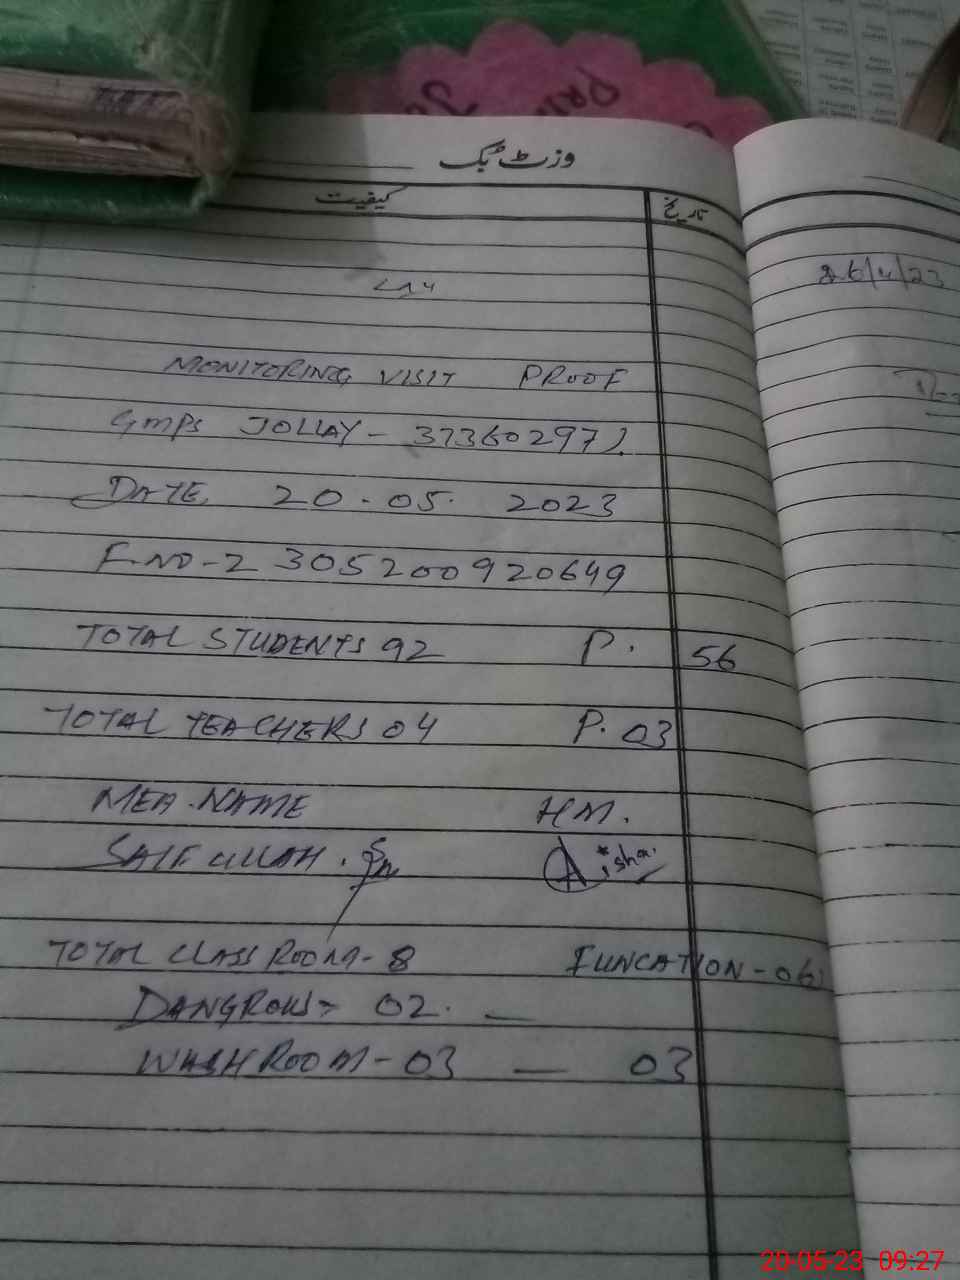 وزٹ بک
کیفیت
تاریخ
۷۸۶
MONITORING VISIT PROOF
GMPS JOLLAY - 37360297
DATE 20-05-2023
F.NO-2305200920649
TOTAL STUDENTS 92 P. 56
TOTAL TEACHERS 04 P. 03
MEA.NAME HM.
SAIF ULLAH. Aisha.
TOTAL CLASS ROOM-8 FUNCATION-06
DANGROUS- 02. —
WASHROOM-03 — 03
26/4/23
20-05-23 09:27